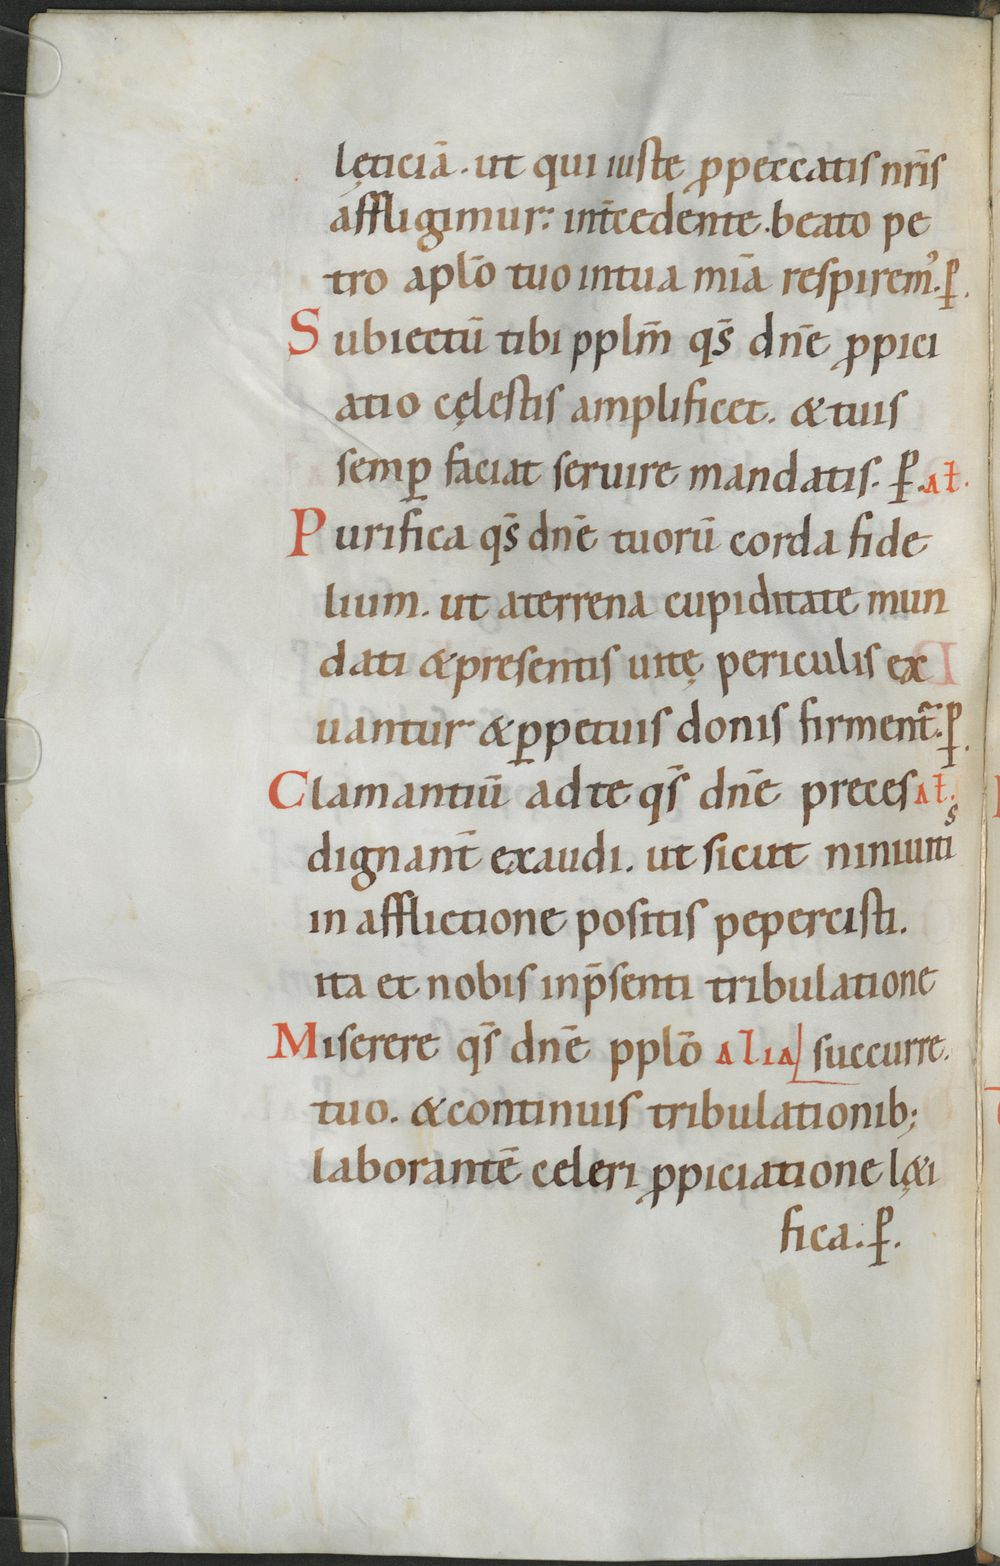 lęticiā. ut qui iuste ꝓpeccatis nr̄is
affligimur: int̄cedente beato pe
tro aplō tuo intua mīa respirem᾽. ꝑ.
Subiectū tibi pplm̄ qs̄ dnē ꝓpici
atio cęlestis amplificet. & tuis
semꝑ faciat seruire mandatis. ꝑ. Aƚ.
Purifica qs̄ dnē tuorū corda fide
lium. ut aterrena cupiditate mun
dati & presentis uitę periculis ex
uantur & ꝑpetuis donis firment̄. ꝑ.
Clamantiū adte qs̄ dnē preces Aƚ.
dignant̄ exaudi. ut sicut niniuitis
in afflictione positis pepercisti.
ita et nobis inp̄senti tribulatione
Miserere qs̄ dnē pplō alia succurre.
tuo. & continuis tribulationib;
laborantē celeri ꝓpiciatione lę&i
fica. ꝑ.